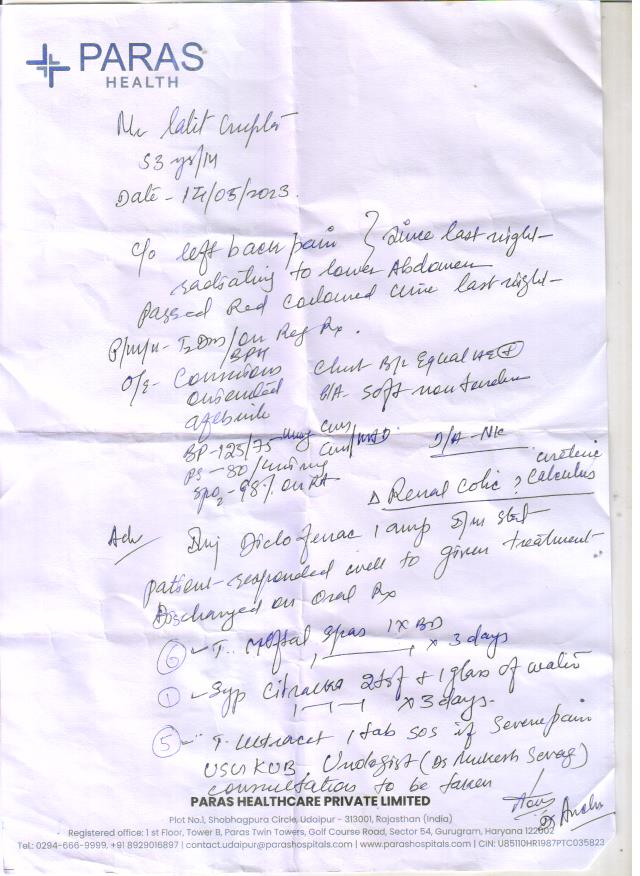 PARAS
HEALTH
Mr Lalit Gupta
53 yrs/M
Date - 14/05/2023.
c/o left back pain } since last night
radiating to lower Abdomen
passed Red coloured urine last night
P/M/H - T2DM/on Reg Rx.
BPH
O/E - Conscious Chest B/L Equal AE +
oriented P/A - soft non tender
afebrile
BP - 125/75 mmHg CNS
PS - 80/min CVS /NAD D/A - NK
SPO2 - 98% on RA
ureteric
Δ Renal Colic ? Calculus
Adv Inj Diclofenac 1 amp I/m stat
patient responded well to given treatment
Discharged on oral Rx
6 T. Meftal spas 1 x BD
x 3 days
1 Syp Citralka 2tsf + 1 glass of water
x 3 days.
5 T. Ultracet 1 tab SOS if Severe pain
USG KUB Urologist (Dr Mukesh Sevag)
consultation to be taken
PARAS HEALTHCARE PRIVATE LIMITED
Plot No.1, Shobhagpura Circle, Udaipur - 313001, Rajasthan (India)
Registered office: 1 st Floor, Tower B, Paras Twin Towers, Golf Course Road, Sector 54, Gurugram, Haryana 122002
Tel.: 0294-666-9999, +91 8929016897 | contact.udaipur@parashospitals.com | www.parashospitals.com | CIN: U85110HR1987PTC035823